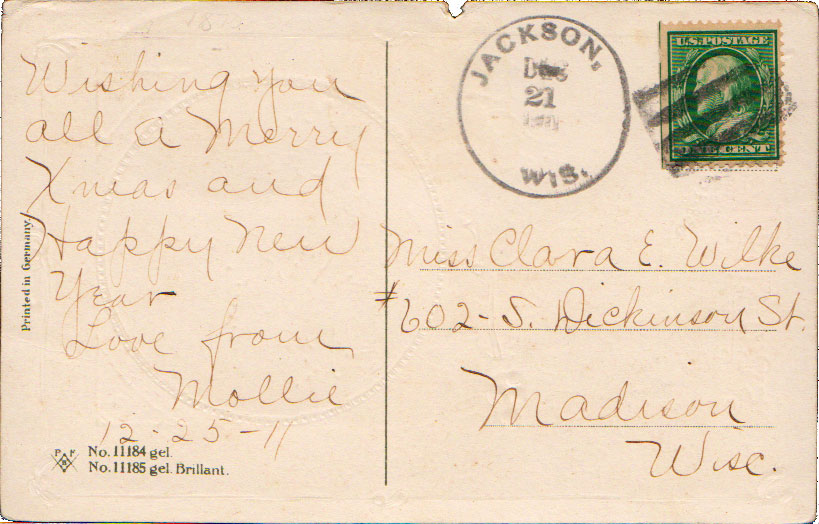 Wishing you
all a Merry
Xmas and
Happy New
Year
Love from
Mollie
12-25-11
Printed in Germany.
P F
B
No. 11184 gel.
No. 11185 gel. Brillant.
JACKSON,
DEC
21
WIS.
U.S. POSTAGE
ONE CENT
Miss Clara E. Wilke
#602-S. Dickinson St.
Madison
Wisc.